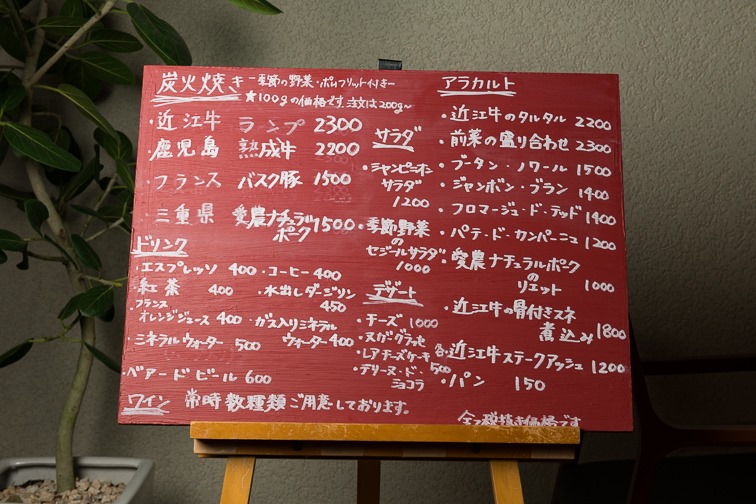 炭火焼き －季節の野菜・ポムフリット付き－
★100gの価格です。注文は200g〜
・近江牛 ランプ 2300
・鹿児島 熟成牛 2200
・フランス バスク豚 1500
・三重県 愛農ナチュラル
ポーク 1500
ドリンク
・エスプレッソ 400 ・コーヒー 400
・紅茶 400 ・水出しダージリン
450
・フランス
オレンジジュース 400 ・ガス入りミネラル
ウォーター 400
・ミネラルウォーター 500
・ベアードビール 600
ワイン 常時数種類ご用意しております。
サラダ
・シャンピニオン
サラダ
1200
・季節野菜
の
セジールサラダ
1000
デザート
・チーズ 1000
・ヌガーグラッセ
・レアチーズケーキ 各
・テリーヌ・ド・ 500
ショコラ
アラカルト
・近江牛のタルタル 2200
・前菜の盛り合わせ 2300
・ブータン・ノワール 1500
・ジャンボン・ブラン 1400
・フロマージュ・ド・テッド 1400
・パテ・ド・カンパーニュ 1200
・愛農ナチュラルポーク
の
リエット 1000
・近江牛の骨付きスネ
煮込み 1800
・近江牛ステークアッシュ 1200
・パン 150
全て税抜き価格です